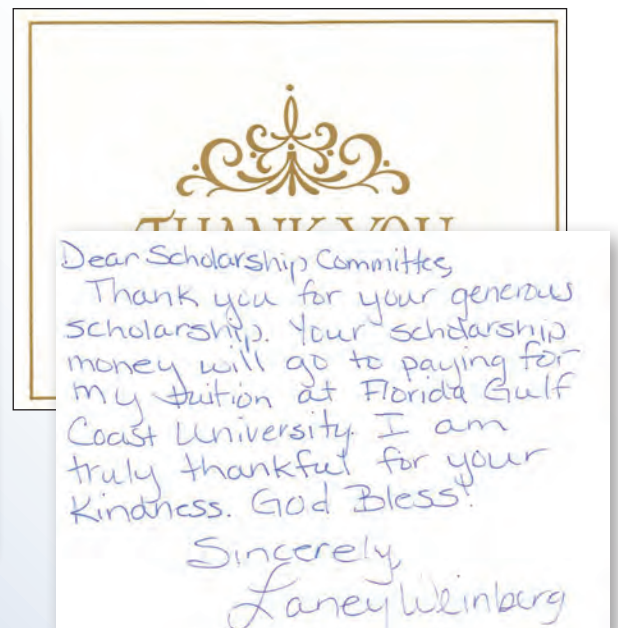 THANK YOU
Dear Scholarship Committee,
Thank you for your generous
scholarship. Your scholarship
money will go to paying for
my tuition at Florida Gulf
Coast University. I am
truly thankful for your
kindness. God Bless!
Sincerely,
Laney Weinberg